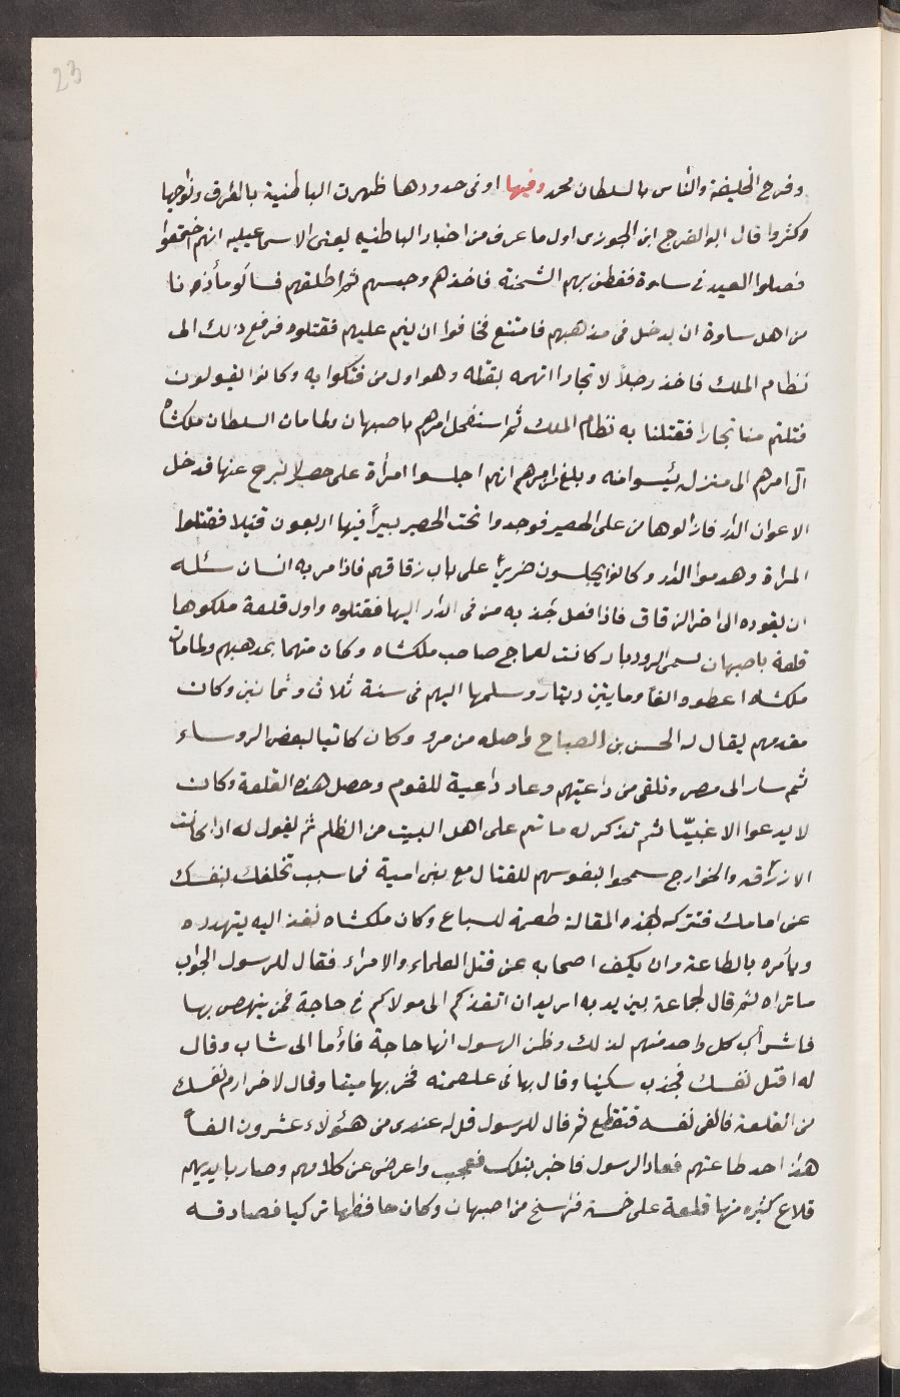 23
وفرح الخليفة والناس بالسلطان محمد وفيها او فى حدودها ظهرت الباطنية بالعراق ونواحيها
وكثروا قال ابو الفرج ابن الجوزى اول ما عرف من اخبار الباطنيه يعنى الاسماعيليه انهم اجتمعوا
فصلوا العيد فى ساوة ففطن بهم الشحنة فاخذهم وحبسهم ثم اطلقهم فسالو مأذونا
من اهل ساوة ان يدخل فى مذهبهم فامتنع فخافوا ان ينم عليهم فقتلوه فرفع ذلك الى
نظام الملك فاخذ رجلاً لا تجارا اتهمه بقتله وهو اول من فتكوا به وكانوا يقولون
قتلتم منا نجارا فقتلنا به نظام الملك ثم استفحل امرهم باصبهان ولما مات السلطان ملكشاه
آل امرهم الى منزلة وبلغ من امرهم انهم اجلسوا امرأة على حصير لا تبرح عنها فدخل
الاعوان الدار فازالوها من على الحصير فوجدوا تحت الحصير بيراً فيها اربعون قتيلا فقتلوا
المراة وهدموا الدار وكانوا يجلسون ضريراً على باب زقاقهم فاذا مر به انسان سئله
ان يقوده الى اخر الزقاق فاذا فعل جُذ به من فى الدار اليها فقتلوه واول قلعة ملكوها
قلعة باصبهان يسمى الرودبار كانت لقماج صاحب ملكشاه وكان متهما بمدهبهم ولما مات
ملكشاه اعطوه الفاً ومايتين دينار وسلمها اليهم فى سنة ثلاث وثمانين وكان
مقدمهم يقال له الحسن بن الصباح واصله من مرو وكان كاتبا لبعض الروساء
ثم سار الى مصر وتلقى من داعيتهم وعاد داعية للقوم وحصل هذه القلعة وكان
لا يدعوا الا غبيّا ثم تذكر له ما تم على اهل البيت من الظلم ثم يقول له اذا كانت
الازراقه والخوارج سمحوا بنفوسهم للقتال مع بنى امية فما سبب تخلفك بنفسك
عن امامك فتتركه بهذه المقالة طعمة للسباع وكان ملكشاه نفذ اليه يتهدده
ويأمره بالطاعة وان يكف اصحابه عن قتل العلماء والامراء فقال للرسول الجواب
ما تراه ثم قال لجماعة بين يديه اريد ان انفذكم الى مولاكم فى حاجة فمن ينهض بها
فاشرأب كل واحد منهم لذلك وظن الرسول انها حاجة فاؤما الى شاب وقال
له اقتل نفسك فجذب سكينا وقال بها فى غلصمته فخر بها ميتا وقال لاخر ارم نفسك
من القلعة فالقى نفسه فتقطع ثم قال للرسول قل له عندى من هئولاء عشرون الفاً
هذا احد طاعتهم فعاد الرسول فاخبر بذلك فعجب واعرض عن كلامهم وصار بايديهم
قلاع كثيره منها قلعة على خمسة فراسخ من اصبهان وكان حافظها تركيا فصادقه